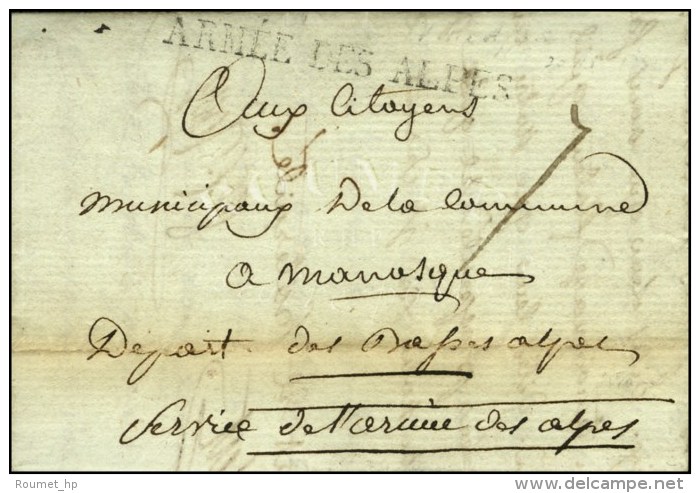 ARMÉE DES ALPES
Aux Citoyens
municipaux De la Commune
a manosque
Depart. des Basses alpes
Service de l'armée des alpes
Roumet_hp
www.delcampe.net